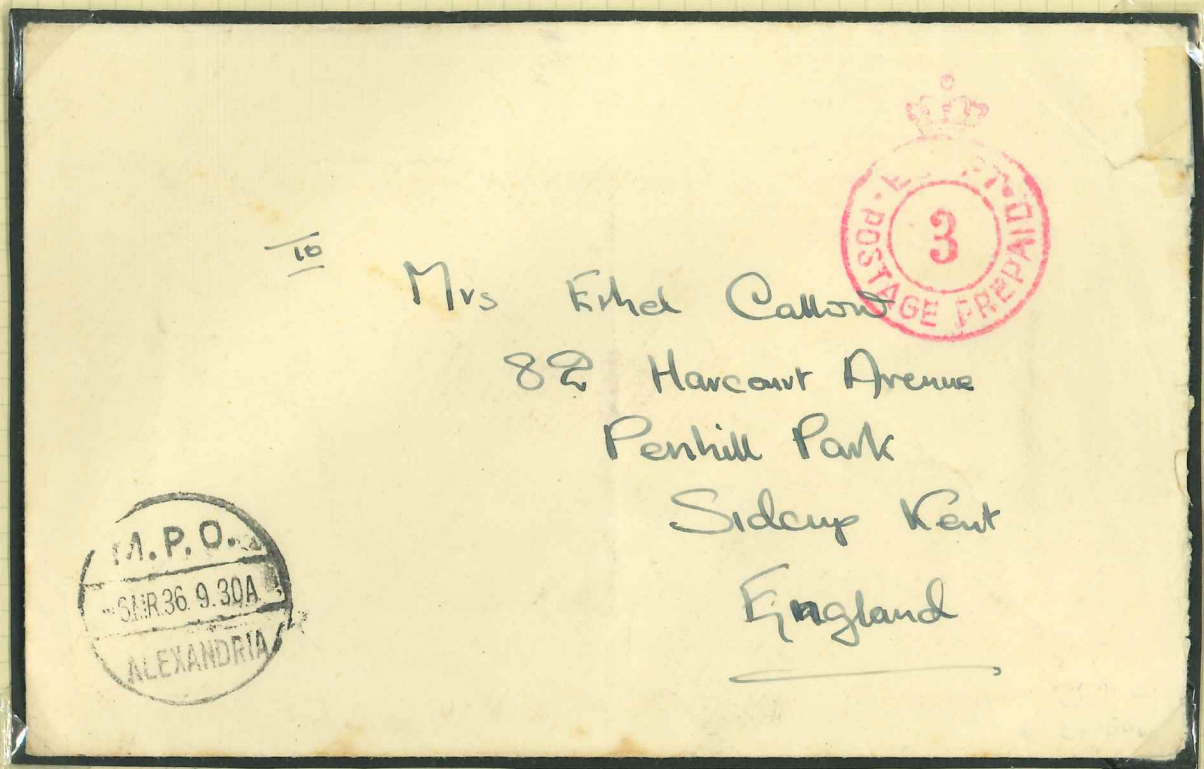 EGYPT · POSTAGE PREPAID ·
3
10
Mrs Ethel Callow
82 Harcourt Avenue
Penhill Park
Sidcup Kent
England
M.P.O.
MR.36 9.30A
ALEXANDRIA